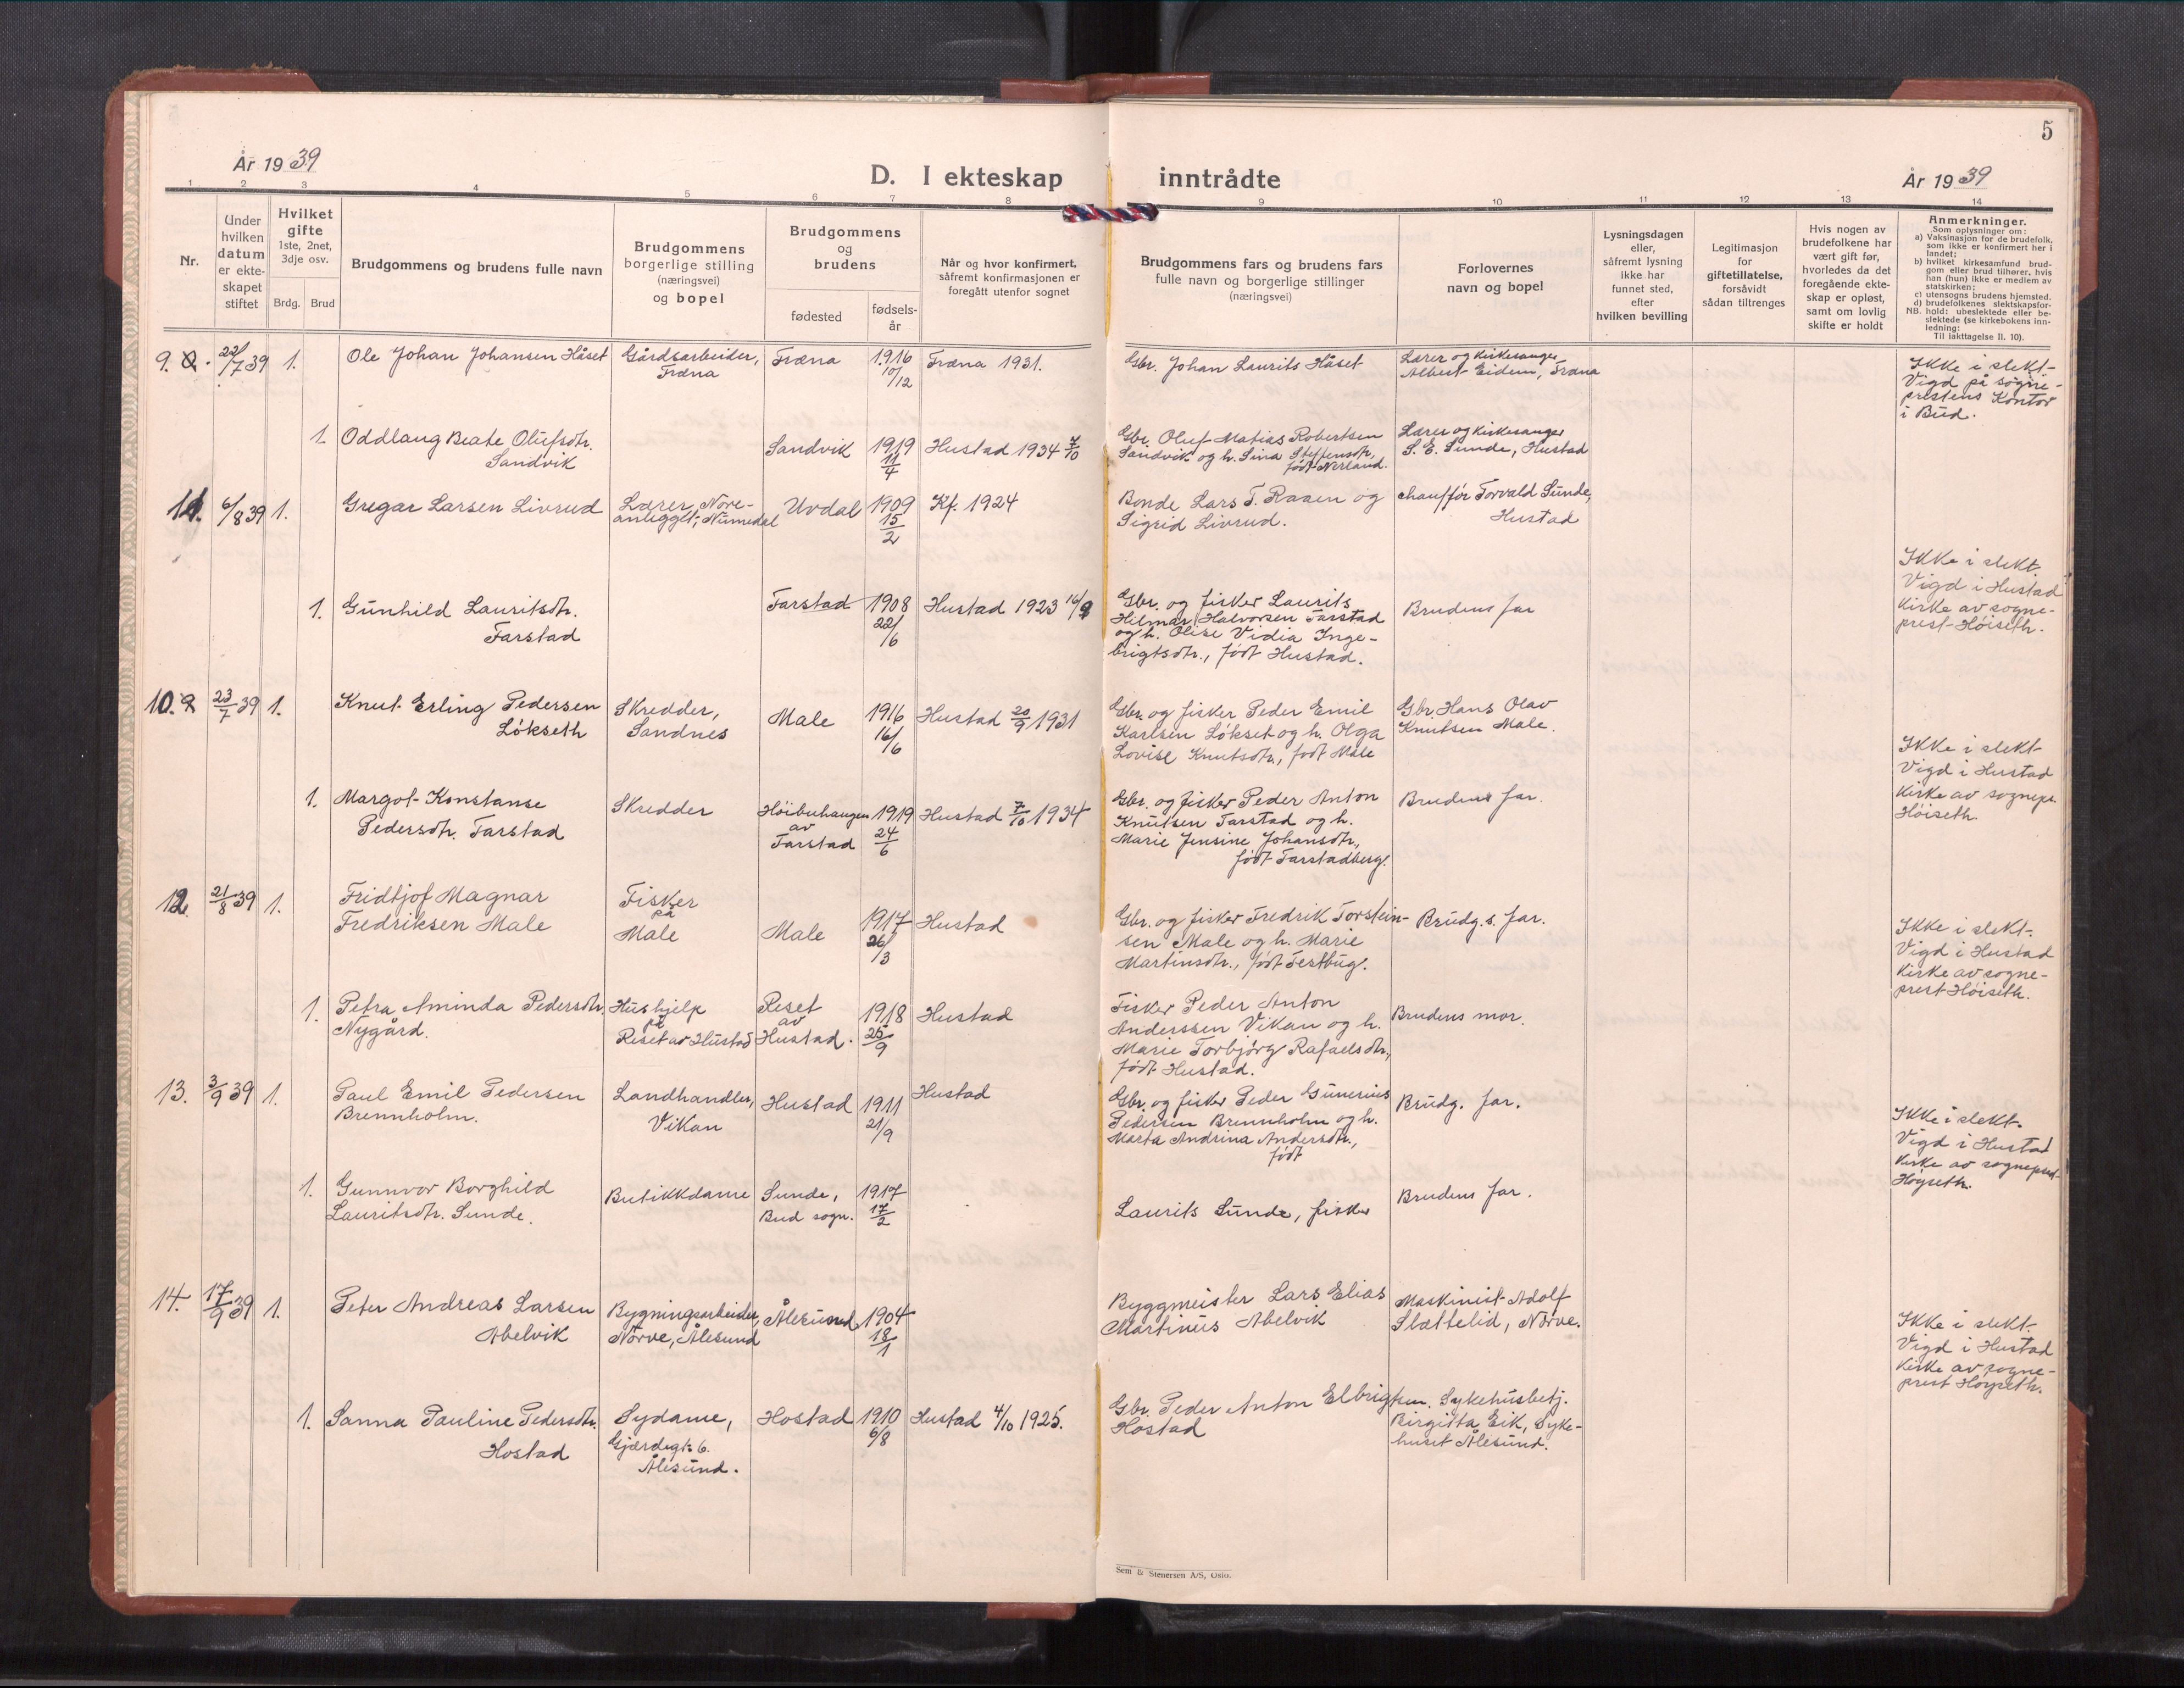 5
År 1939
D. I ekteskap inntrådte
År 1939
1 2 3 4 5 6 7 8 9 10 11 12 13 14
Nr.
Under
hvilken
datum
er ekte-
skapet
stiftet
Hvilket
gifte
1ste, 2net,
3dje osv.
Brdg. Brud
Brudgommens og brudens fulle navn
Brudgommens
borgerlige stilling
(næringsvei)
og bopel
Brudgommens
og
brudens
fødested
fødsels-
år
Når og hvor konfirmert,
såfremt konfirmasjonen er
foregått utenfor sognet
Brudgommens fars og brudens fars
fulle navn og borgerlige stillinger
(næringsvei)
Forlovernes
navn og bopel
Lysningsdagen
eller,
såfremt lysning
ikke har
funnet sted,
efter
hvilken bevilling
Legitimasjon
for
giftetillatelse,
forsåvidt
sådan tiltrenges
Hvis nogen av
brudefolkene har
vært gift før,
hvorledes da det
foregående ekte-
skap er opløst,
samt om lovlig
skifte er holdt
Anmerkninger.
Som oplysninger om:
a) Vaksinasjon for de brudefolk,
som ikke er konfirmert her i
landet;
b) hvilket kirkesamfund brud-
gom eller brud tilhører, hvis
han (hun) ikke er medlem av
statskirken;
c) utensogns brudens hjemsted.
d) brudefolkenes slektskapsfor-
NB. hold: ubeslektede eller be-
slektede (se kirkebokens inn-
ledning:
Til iakttagelse II. 10).
9. 22/7 39 1. Ole Johan Johansen Håset Gårdsarbeider, Fræna 1916 Fræna 1931. Gbr. Johan Laurits Håset Lærer og kirkesanger
Fræna 10/12 Albert Eidem, Fræna
Ikke i slekt
Vigd på sogne-
prestens Kontor
i Bud.
1. Oddlaug Beate Olufsdtr. Sandvik 1919 Hustad 1934 7/10 Gbr. Oluf Matias Robertsen Lærer og kirkesanger
Sandvik 11/4 Sandvik og h. Sina Steffensdtr, S. E. Sunde, Hustad
født Nerland.
11. 6/8 39 1. Gregar Larsen Livrud Lærer, Nore- Uvdal 1909 Kf. 1924 Bonde Lars T. Raaen og chauffør Torvald Sunde,
anlegget, Numedal 15/2 Sigrid Livrud. Hustad
Ikke i slekt
Vigd i Hustad
Kirke av sogne-
prest Høiseth.
1. Gunhild Lauritsdtr. Farstad 1908 Hustad 1923 16/9 Gbr. og fisker Laurits Brudens far
Farstad 22/6 Hilmar Halvorsen Farstad
og h. Olise Vidia Inge-
brigtsdtr., født Hustad.
10. 23/7 39 1. Knut Erling Pedersen Skredder, Male 1916 Hustad 20/9 1931 Gbr. og fisker Peder Emil Gbr Hans Olav
Løkseth Sandnes 16/6 Karlsen Løkset og h. Olga Knutsen Male.
Lovise Knutsdtr., født Male
Ikke i slekt
Vigd i Hustad
Kirke av sognepr.
Høiseth.
1. Margot Konstanse Skredder Høibuhaugen 1919 Hustad 7/10 1934 Gbr. og fisker Peder Anton Brudens far.
Pedersdtr. Farstad av 24/6 Knutsen Farstad og h.
Farstad Marie Jensine Johansdtr,
født Farstadberg.
12. 21/8 39 1. Fridtjof Magnar Fisker Male 1917 Hustad Gbr. og fisker Fredrik Torstein- Brudg.s. far.
Fredriksen Male på 26/3 sen Male og h. Marie
Male Martinsdtr., født Testbug.
Ikke i slekt.
Vigd i Hustad
Kirke av sogne-
prest Høiseth.
1. Petra Aminda Pedersdtr, Hushjelp Reset 1918 Hustad Fisker Peder Anton Brudens mor.
Nygård. på av 25/9 Anderssen Vikan og h.
Reset av Hustad Hustad. Marie Torbjørg Rafaelsdtr,
født Hustad.
13. 3/9 39 1. Paul Emil Pedersen Landhandler, Hustad 1911 Hustad Gbr. og fisker Peder Gunerius Brudg. far.
Brennholm. Vikan 21/9 Pedersen Brennholm og h.
Marta Andrina Andersdtr.,
født
Ikke i slekt.
Vigd i Hustad
Kirke av sogneprest
Høyseth.
1. Gunnvor Borghild Butikkdame Sunde, 1917 Laurits Sunde, fisker Brudens far.
Lauritsdtr. Sunde. Bud sogn. 17/2
14. 17/9 39 1. Peter Andreas Larsen Bygningsarbeider, Ålesund 1904 Byggmeister Lars Elias Maskinist Adolf
Abelvik Nørve, Ålesund 18/1 Martinus Abelvik Slættelid, Nørve.
Ikke i slekt.
Vigd i Hustad
Kirke av sogne-
prest Høyseth.
1. Sanna Pauline Pedersdtr. Sydame, Hostad 1910 Hustad 4/10 1925. Gbr. Peder Anton Elbrigtsen. Sykehusbetj.
Hostad Gjærdegt. 6. 6/8 Hostad Birgitta Eik, Syke-
Ålesund. huset Ålesund.
Sem & Stenersen A/S, Oslo.